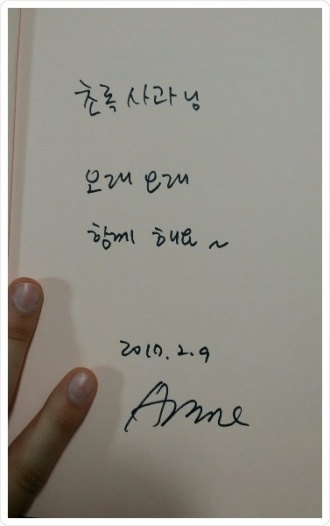 초록사과님
오래 오래
함께 해요~
2017.2.9
Anne